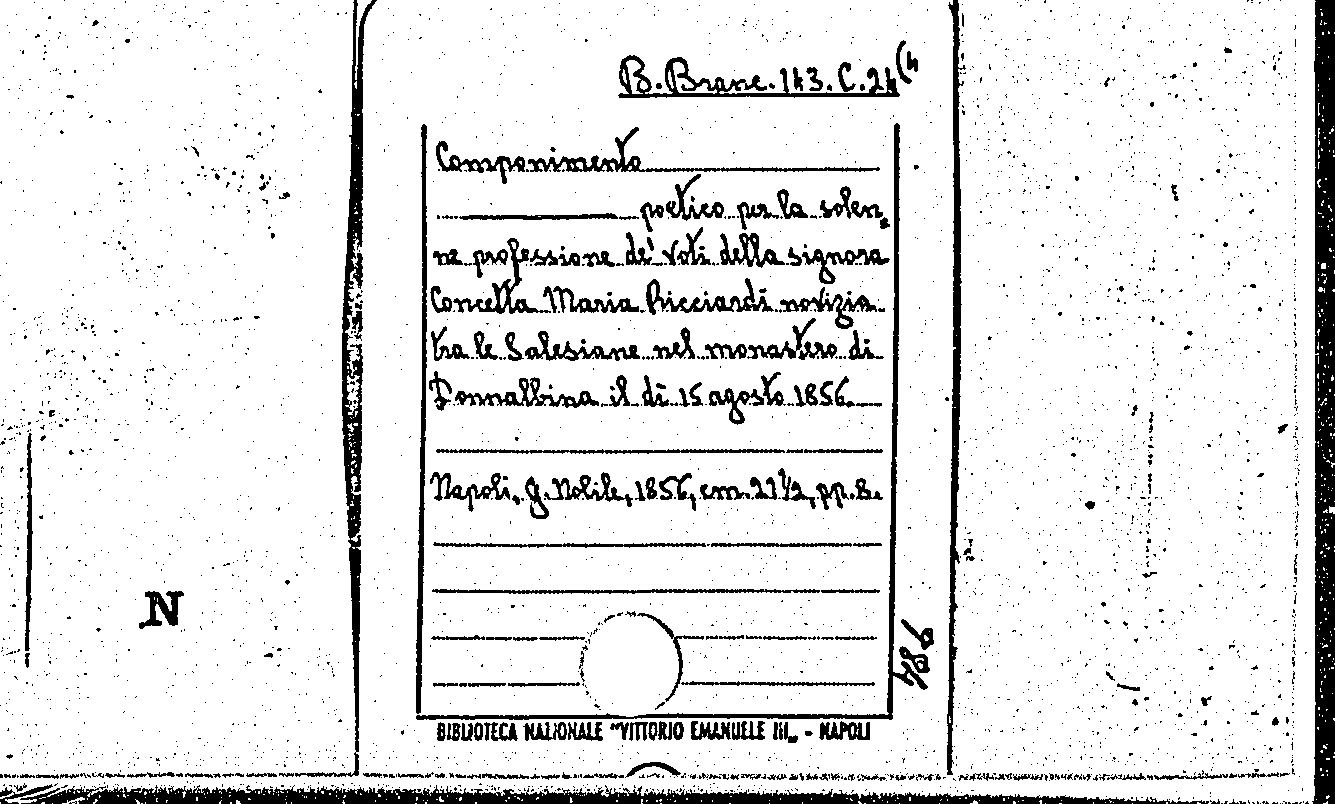 B. Branc. 143. C. 24 (4
Componimento
poetico per la solen=
ne professione de' voti della signora
Concetta Maria Ricciardi novizia
tra le Salesiane nel monastero di
Donnalbina il dì 15 agosto 1856.
Napoli, G. Nobile, 1856, cm. 21½, pp. 8.
N
BIBLIOTECA NAZIONALE "VITTORIO EMANUELE III„ - NAPOLI